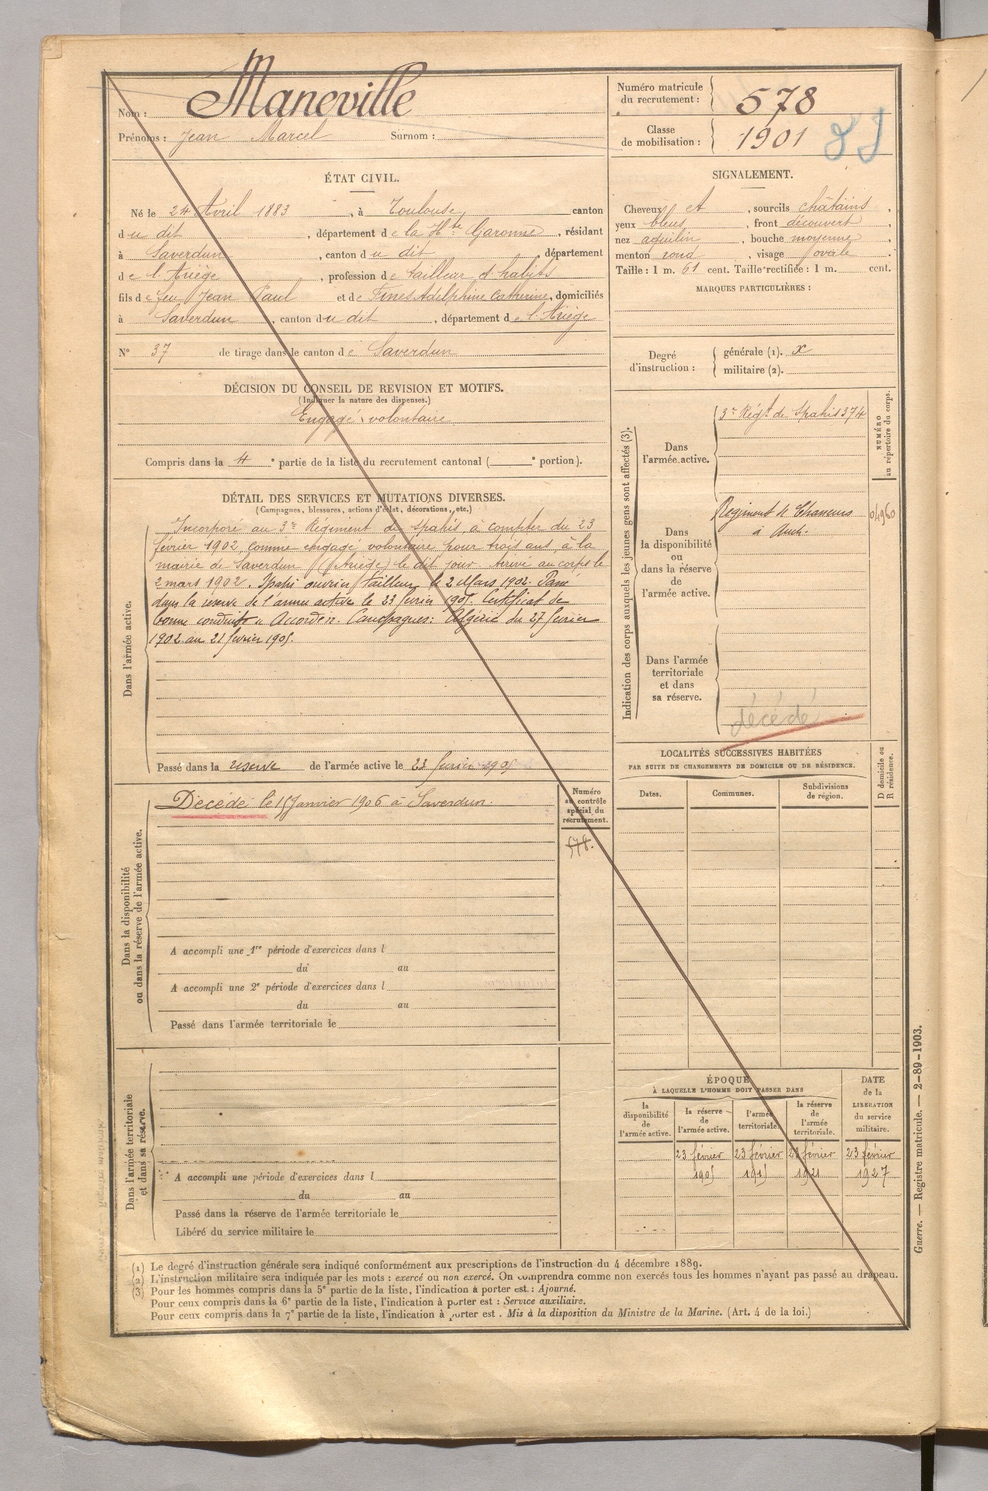 Nom : Maneville
Prénoms : Jean Marcel Surnom :
ÉTAT CIVIL.
Né le 24 Avril 1883, à Toulouse, canton
du dit, département de la Hte Garonne, résidant
à Saverdun, canton du dit, département
de l'Ariège, profession de tailleur d'habits
fils de feu Jean Paul et de Adelphine Catherine, domiciliés
à Saverdun, canton du dit, département de l'Ariège
N° 37 de tirage dans le canton de Saverdun
DÉCISION DU CONSEIL DE REVISION ET MOTIFS.
(Indiquer la nature des dispenses.)
Engagé volontaire
Compris dans la 4e partie de la liste du recrutement cantonal ( e portion).
DÉTAIL DES SERVICES ET MUTATIONS DIVERSES.
(Campagnes, blessures, actions d'éclat, décorations, etc.)
Dans l'armée active.
Incorporé au 3e Régiment de Spahis à compter du 23
février 1902 comme engagé volontaire pour trois ans, à la
mairie de Saverdun (Ariège) le dit jour. Arrivé au corps le
2 mars 1902. Spahi ouvrier tailleur le 2 Mars 1902. Passé
dans la réserve de l'armée active le 23 février 1905. Certificat de
bonne conduite "Accordé". Campagnes: Algérie du 27 février
1902 au 21 février 1905.
Passé dans la réserve de l'armée active le 23 février 1905
Dans la disponibilité
ou dans la réserve de l'armée active.
Décédé le 15 Janvier 1906 à Saverdun.
Numéro
au contrôle
spécial du
recrutement.
578.
A accompli une 1re période d'exercices dans l
du au
A accompli une 2e période d'exercices dans l
du au
Passé dans l'armée territoriale le
Dans l'armée territoriale
et dans sa réserve.
A accompli une période d'exercices dans l
du au
Passé dans la réserve de l'armée territoriale le
Libéré du service militaire le
Numéro matricule
du recrutement : 578
Classe
de mobilisation : 1901
SIGNALEMENT.
Cheveux et, sourcils châtains,
yeux bleus, front découvert,
nez aquilin, bouche moyenne,
menton rond, visage ovale
Taille : 1 m. 61 cent. Taille rectifiée : 1 m. cent.
MARQUES PARTICULIÈRES :
Degré
d'instruction :
générale (1). x
militaire (2).
Indication des corps auxquels les jeunes gens sont affectés (3).
NUMÉRO
au répertoire du corps.
Dans
l'armée active.
3e Régt de Spahis 374
Dans
la disponibilité
ou
dans la réserve
de
l'armée active.
Régiment de Chasseurs
à Auch.
Dans l'armée
territoriale
et dans
sa réserve.
décédé
LOCALITÉS SUCCESSIVES HABITÉES
PAR SUITE DE CHANGEMENTS DE DOMICILE OU DE RÉSIDENCE.
Dates. Communes. Subdivisions
de région.
D domicile ou
R résidence.
ÉPOQUE
À LAQUELLE L'HOMME DOIT PASSER DANS
DATE
de la
LIBÉRATION
du service
militaire.
la
disponibilité
de
l'armée active.
la réserve
de
l'armée active.
l'armée
territoriale.
la réserve
de
l'armée
territoriale.
23 février 23 février 23 février 23 février
1905 1915 1921 1927
(1) Le degré d'instruction générale sera indiqué conformément aux prescriptions de l'instruction du 4 décembre 1889.
(2) L'instruction militaire sera indiquée par les mots : exercé ou non exercé. On comprendra comme non exercés tous les hommes n'ayant pas passé au drapeau.
(3) Pour les hommes compris dans la 5e partie de la liste, l'indication à porter est : Ajourné.
Pour ceux compris dans la 6e partie de la liste, l'indication à porter est : Service auxiliaire.
Pour ceux compris dans la 7e partie de la liste, l'indication à porter est : Mis à la disposition du Ministre de la Marine. (Art. 4 de la loi.)
Guerre. — Registre matricule. — 2-89-1903.